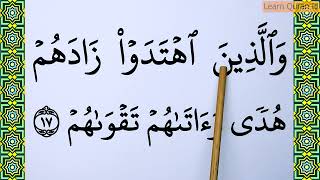 Learn Quran
وَٱلَّذِينَ ٱهۡتَدَوۡاْ زَادَهُمۡ
هُدٗى وَءَاتَىٰهُمۡ تَقۡوَىٰهُمۡ ١٧